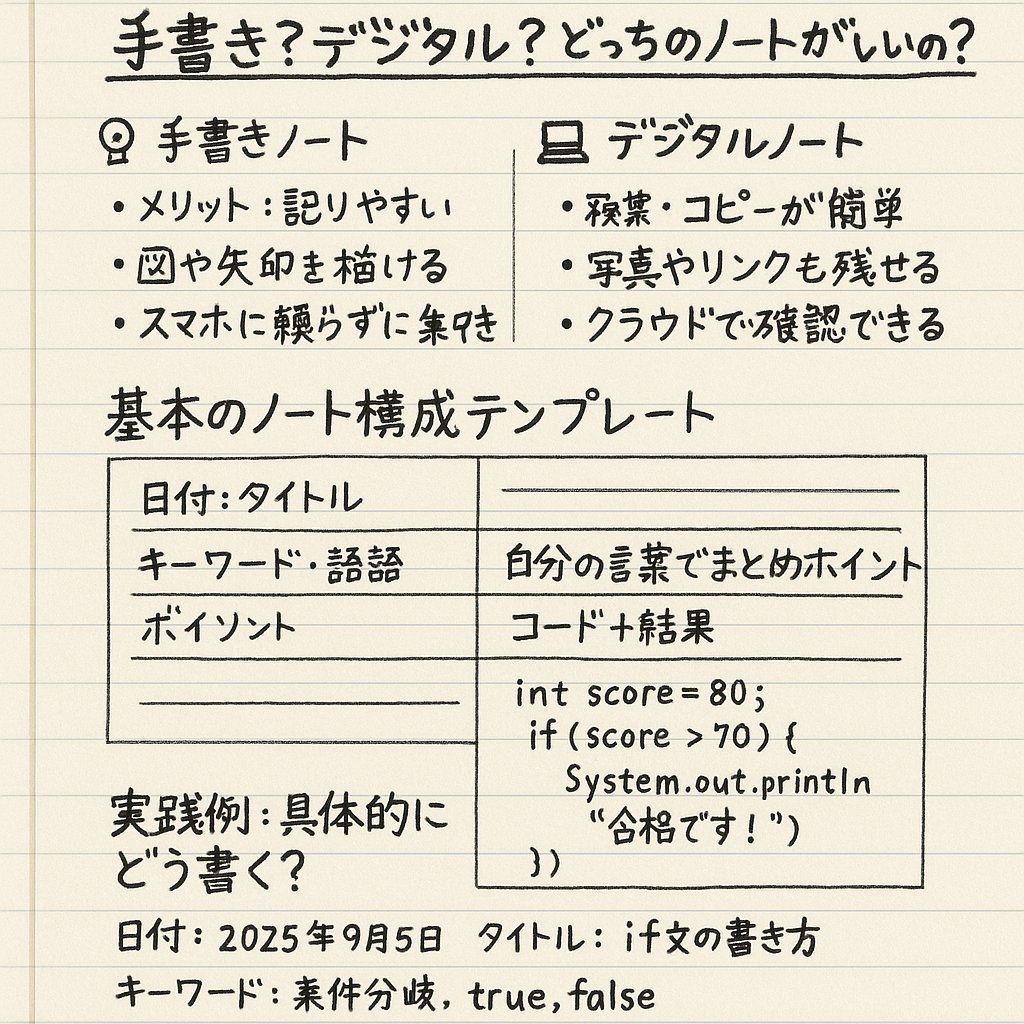 手書き？デジタル？どっちのノートがいいの？
手書きノート
・メリット：記りやすい
・図や矢印を描ける
・スマホに頼らずに集中
デジタルノート
・検葉・コピーが簡単
・写真やリンクも残せる
・クラウドで確認できる
基本のノート構成テンプレート
日付：タイトル
キーワード・語語
自分の言葉でまとめホイント
ボイソント
コード＋結果
int score = 80;
if (score > 70) {
System.out.println
“合格です！”)
})
実践例：具体的に
どう書く？
日付：2025年9月5日 タイトル：if文の書き方
キーワード：条件分岐, true, false